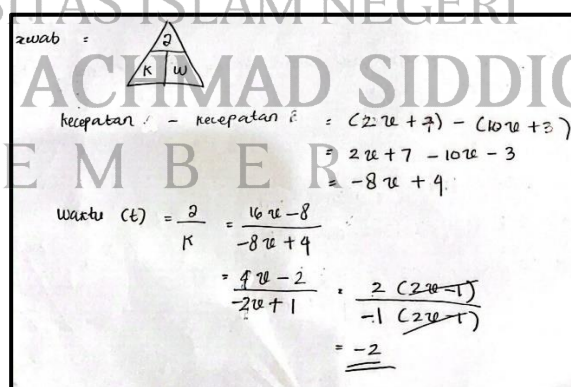 ITAS ISLAM NEGERI
ACHMAD SIDDIQ
EMBER
zwab =
J
K W
kecepatan - kecepatan = (2x + 7) - (10x + 3)
= 2x + 7 - 10x - 3
= -8x + 4
Waktu (t) = J/K = 16x - 8 / -8x + 4
= 4x - 2 / -2x + 1 = 2 (2x - 1) / -1 (2x - 1)
= -2